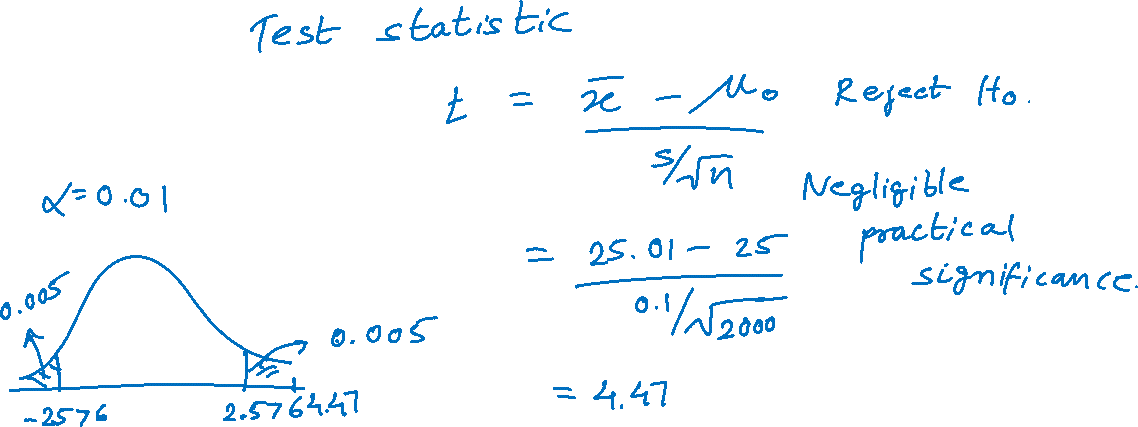 Test statistic
t = x̄ - μ₀ Reject H₀.
s/√n
α=0.01
Negligible
practical
significance.
= 25.01 - 25
0.1/√2000
0.005
0.005
= 4.47
-2576 2.576 4.47